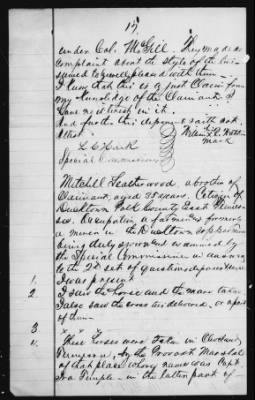 17.
under Col. McGill. They made no
complaint about the style of the but
seemed to be well pleased with them –
I know that this is a just Claim from
my knowledge of the Claimant. I
have no interest in it.
And further this deponent saith not.
Attest
mark
L C Hauk
Special Commissioner
Mitchell Leatherwood a brother of
Claimant, aged 37 years. Citizen of
Ducktown Polk County East Tennes-
see. Occupation, a farmer, formerly
a miner in the Ducktown Copper mines
being duly sworn and examined by
the Special Commissioner in answer
to the 2d set of questions deposes & says
1. I was present
2. I saw the horse and the mare taken
I also saw the corn delivered, or a part
of them –
3
4. These horses were taken in Cleveland
Tennessee, by the Provost Marshal
of that place whose name was Capt.
Ira Temple – in the latter part of